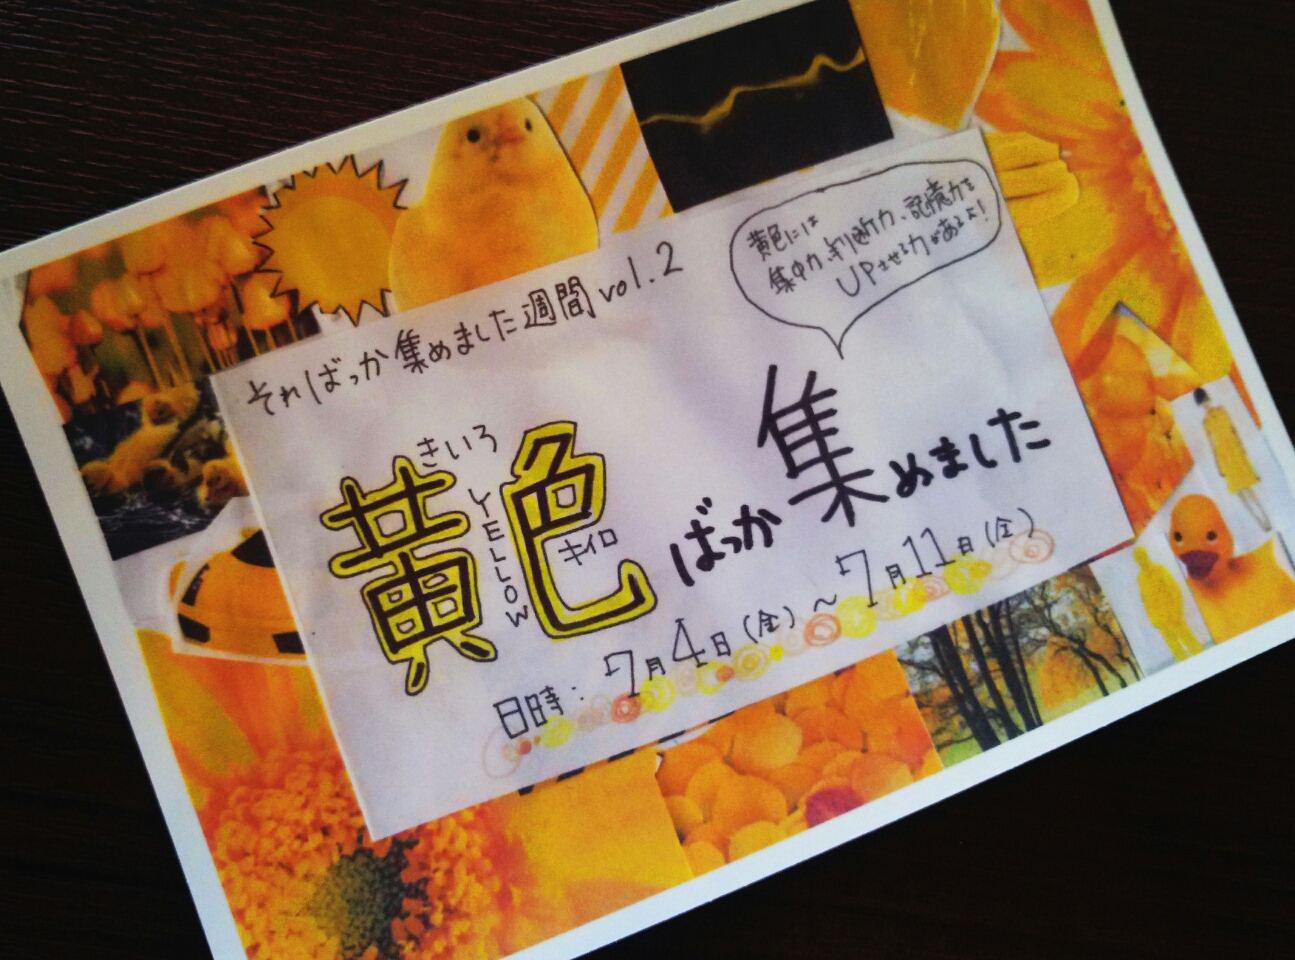 そればっか集めました週間vol.2
黄色には
集中力、判断力、記憶力を
UPさせる力があるよ!
きいろ
黄色
YELLOW
キイロ
ばっか集めました
日時：7月4日(金)～7月11日(金)